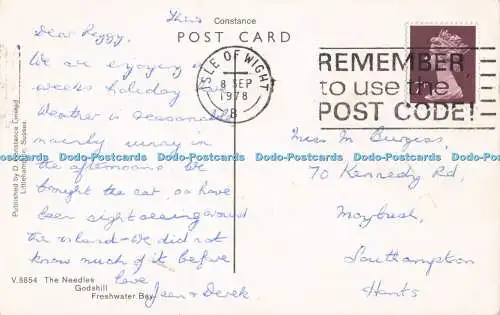 Constance
POST CARD
This
Dear Peggy,
We are enjoying a
weeks holiday
Weather is reasonable
mainly sunny in
the afternoons. We
bought the car, so have
been sightseeing around
the island - We did not
know much of it before
love
Jean & Derek
ISLE OF WIGHT
8 SEP
1978
B
REMEMBER
to use the
POST CODE!
Miss M Burgess,
70 Kennedy Rd,
Maybush,
Southampton
Hants
Published by D. Constance Limited,
Littlehampton, Sussex
V.8854 The Needles
Godshill
Freshwater Bay
Dodo-Postcards Dodo-Postcards Dodo-Postcards Dodo-Postcards Dodo-Postcards